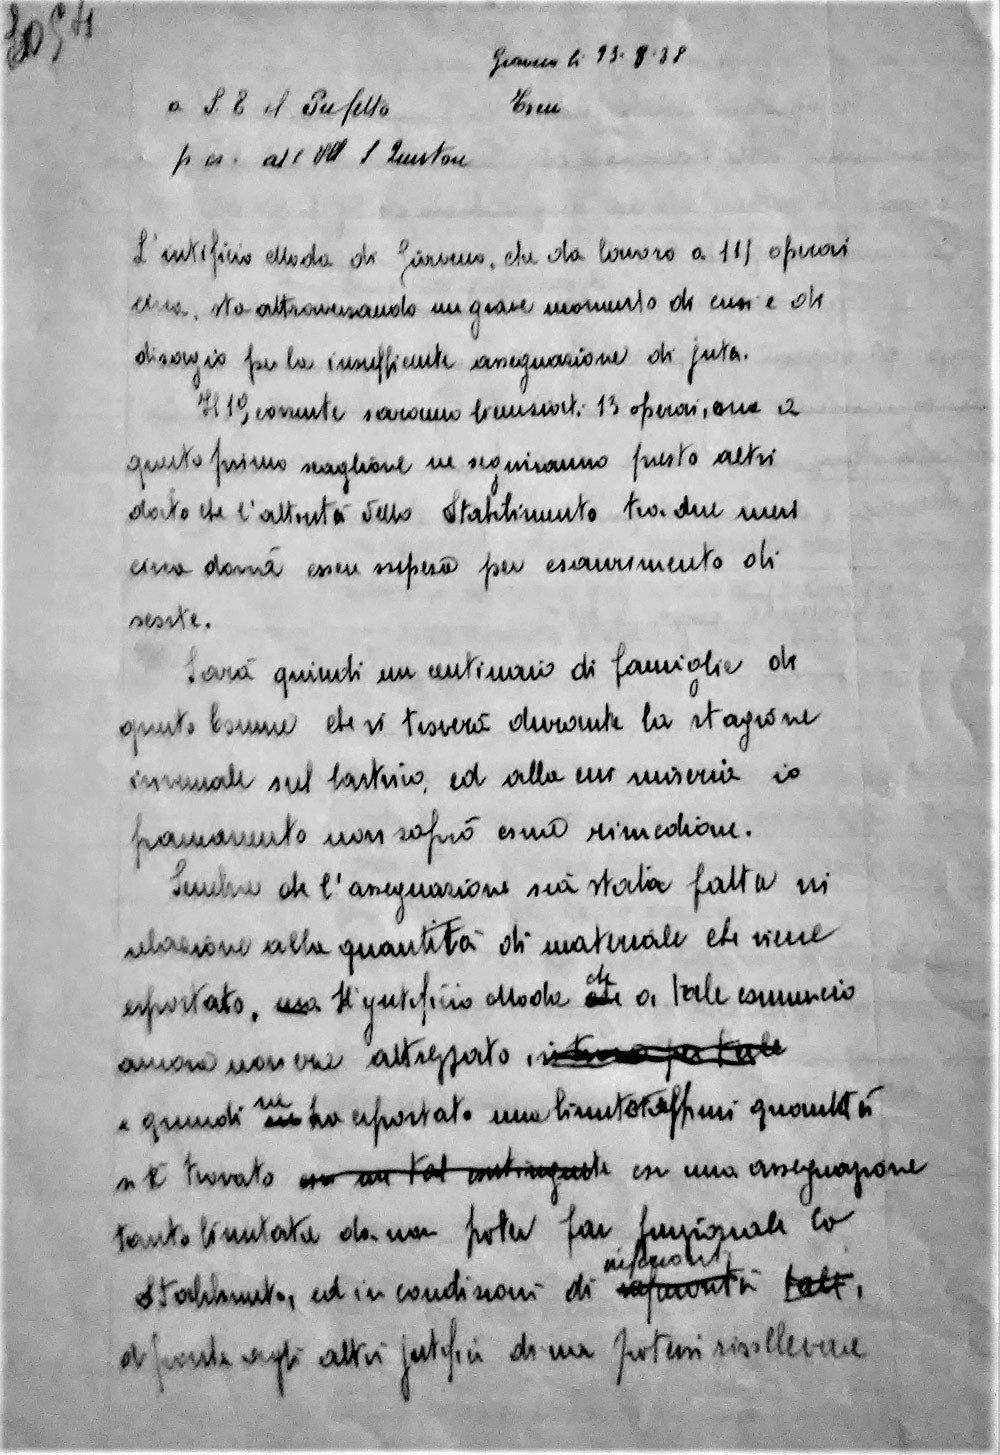 Garaveno li 23·8·38
a S. E il Prefetto Como
p. co. all' Ill S Questore
L'intificio Moda di Garaveno, che da lavoro a 115 operai
circa, sta attraversando un grave momento di crisi e di
disagio per la insufficiente assegnazione di juta.
Il 19 corrente saranno licenziati 13 operai, ma a
questo primo scaglione ne seguiranno presto altri
dato che l'attività dello Stabilimento tra due mesi
circa dovrà essere sospesa per esaurimento di
scorte.
Sarà quindi un centinaio di famiglie di
questo Comune che si troverà durante la stagione
invernale sul lastrico, ed alla cui miseria io
francamente non saprò come rimediare.
Sembra che l'assegnazione sia stata fatta in
relazione alla quantità di materiale che viene
esportato, ma Il jutificio Moda che a tale commercio
ancora non era attrezzato,
e quindi ne ha esportato una limitatissima quantità
si è trovato con un tal contingente con una assegnazione
tanto limitata da non poter far funzionale lo
Stabilimento, ed in condizioni di inferiorità tali,
di fronte agli altri jutifici da non potersi risollevare